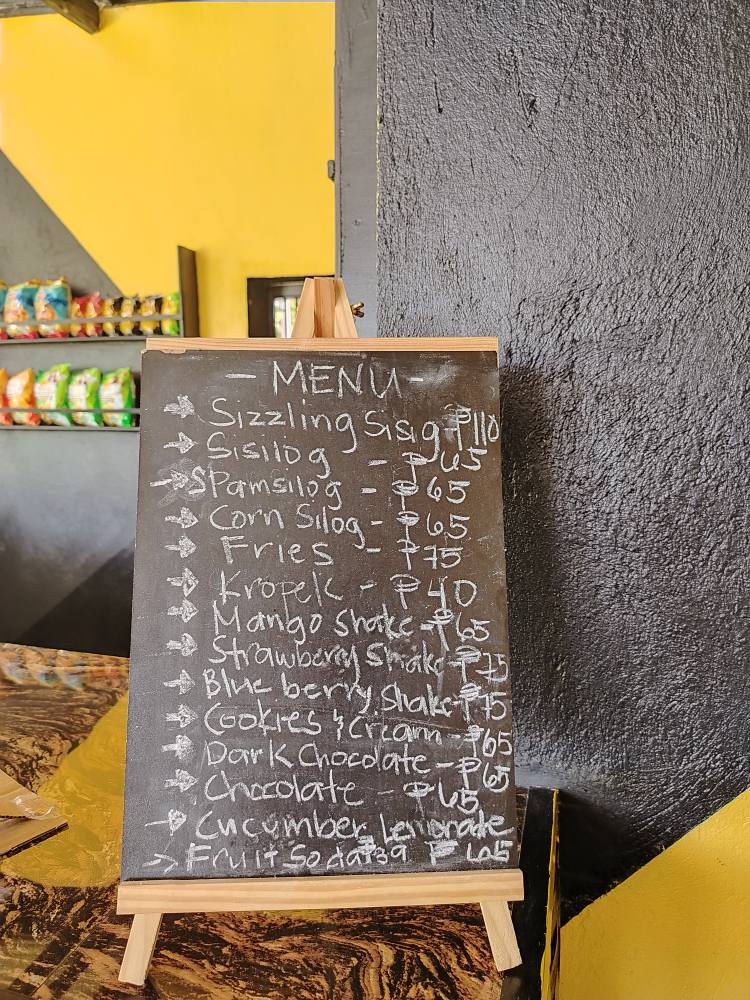 - MENU -
Sizzling Sisig ₱110
Sisilog - ₱65
Spamsilog - ₱65
Corn Silog - ₱65
Fries - ₱75
Kropek - ₱40
Mango Shake - ₱65
Strawberry Shake - ₱75
Blue berry Shake - ₱75
Cookies & Cream - ₱65
Dark Chocolate - ₱65
Chocolate - ₱65
Cucumber Lemonade
Fruit Soda ₱39 ₱